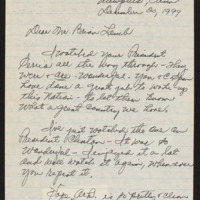 December 20, 1999
Dear Mr Brian Lamb
I watched your President
Series all the way through - They
were & are - Wonderful - you & CSpan
have done a great job To write up
this nation - to let them know
what a great country we live.
I've just watched the one on
President Clinton - it was so
Wonderful - I enjoyed it a lot
and will watch it again, whenever
you repeat it.
is so pretty & clean